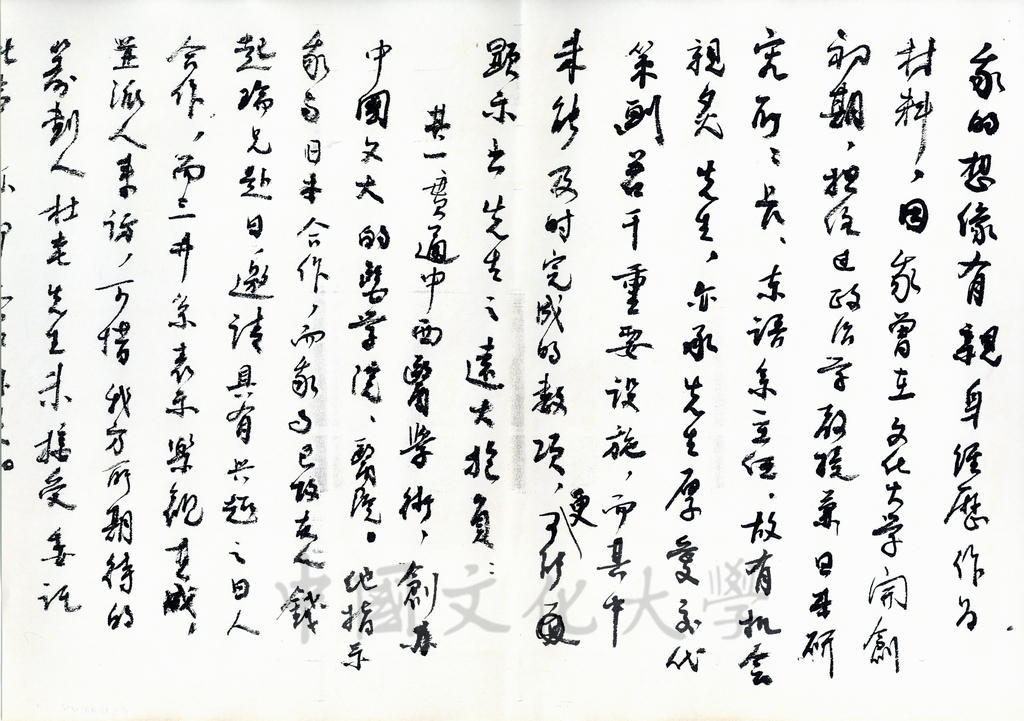 我的想像有親身經歷作為
材料，因我曾在文化大学開創
初期，担任过政治学教授兼日本研
究所之長、东語系主任。故有机会
親炙先生，亦承先生厚愛交代
策劃若干重要設施，而其中
未能及时完成的数項，更可能
顯示出先生之遠大抱負：
其一貫通中西醫學術，創办
中國文大的醫学院、醫院。他指示
我与日本合作，而我与已故友人錢
起瑞兄赴日，邀請具有兴趣之日人
合作，而三井系表示樂觀其成，
並派人来訪，可惜我方所期待的
籌劃人杜先生未接受委託
中國文化大學